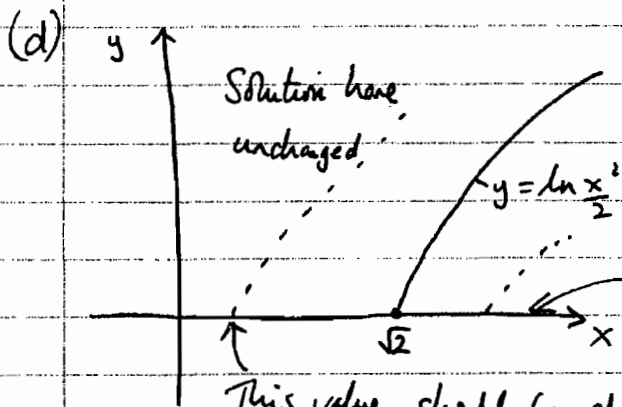 (d)
y
Solution here
unchanged
y = ln x²/2
√2
x
This value